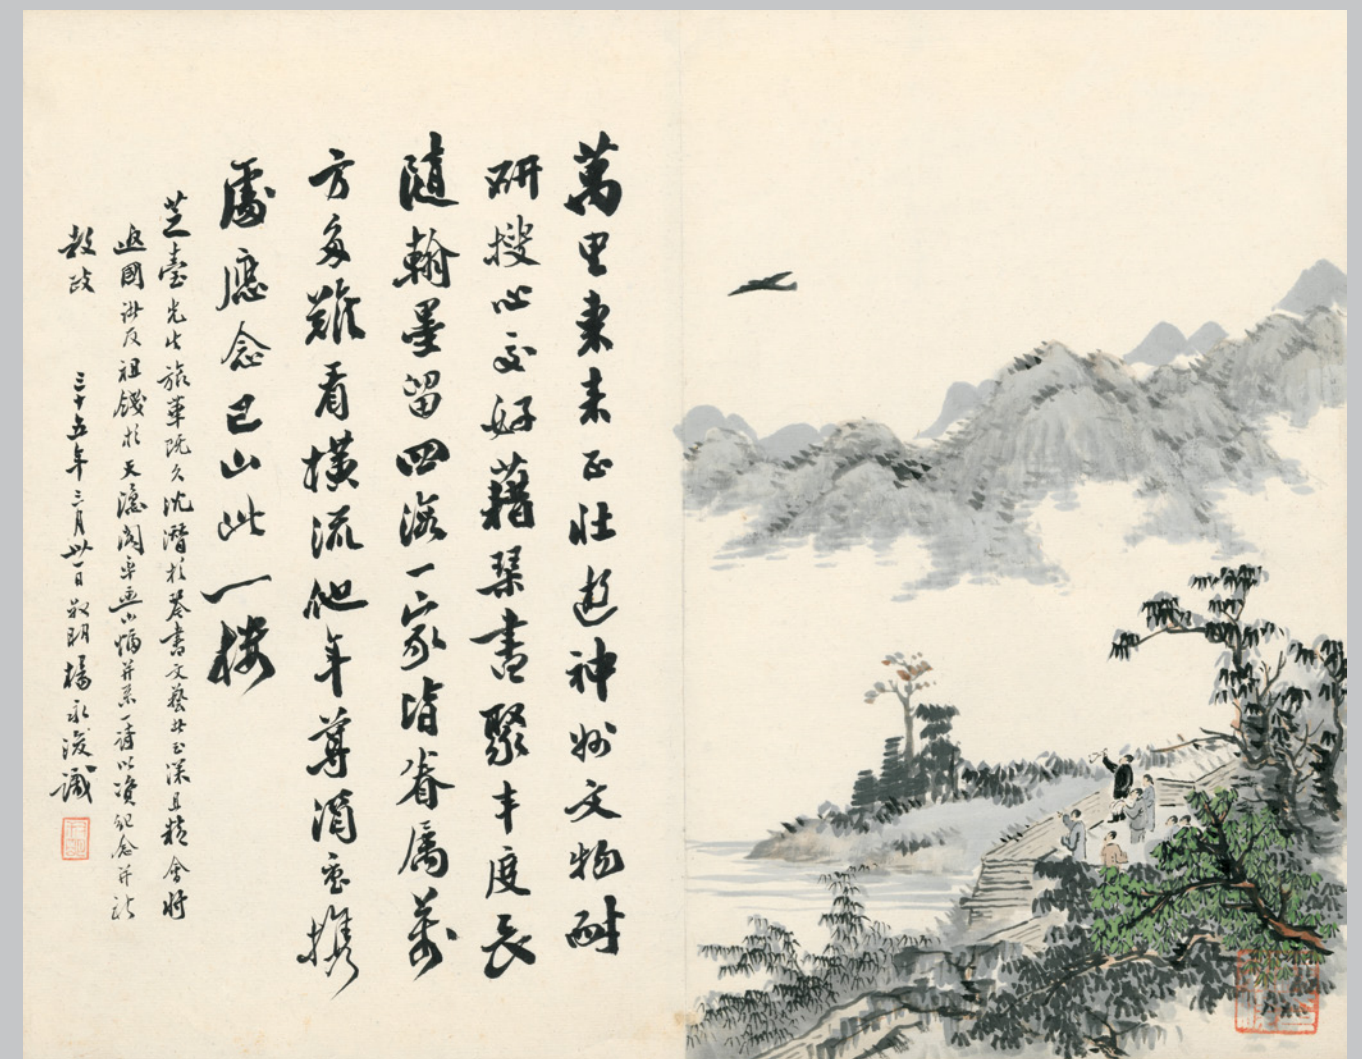 萬里東來正壯遊神州文物耐
研搜心交好藉琴書聚丰度長
隨翰墨留四海一家皆眷屬萬
方多難看橫流他年尊酒重攜
處應念巴山此一樓
芝臺先生旅華既久沈潛於琴書文藝者至深且精會將
返國洪友祖餞於天隱閣率畫小幅并系一詩以資紀念并祈
教政
三十五年三月卅一日叔明楊永浚識